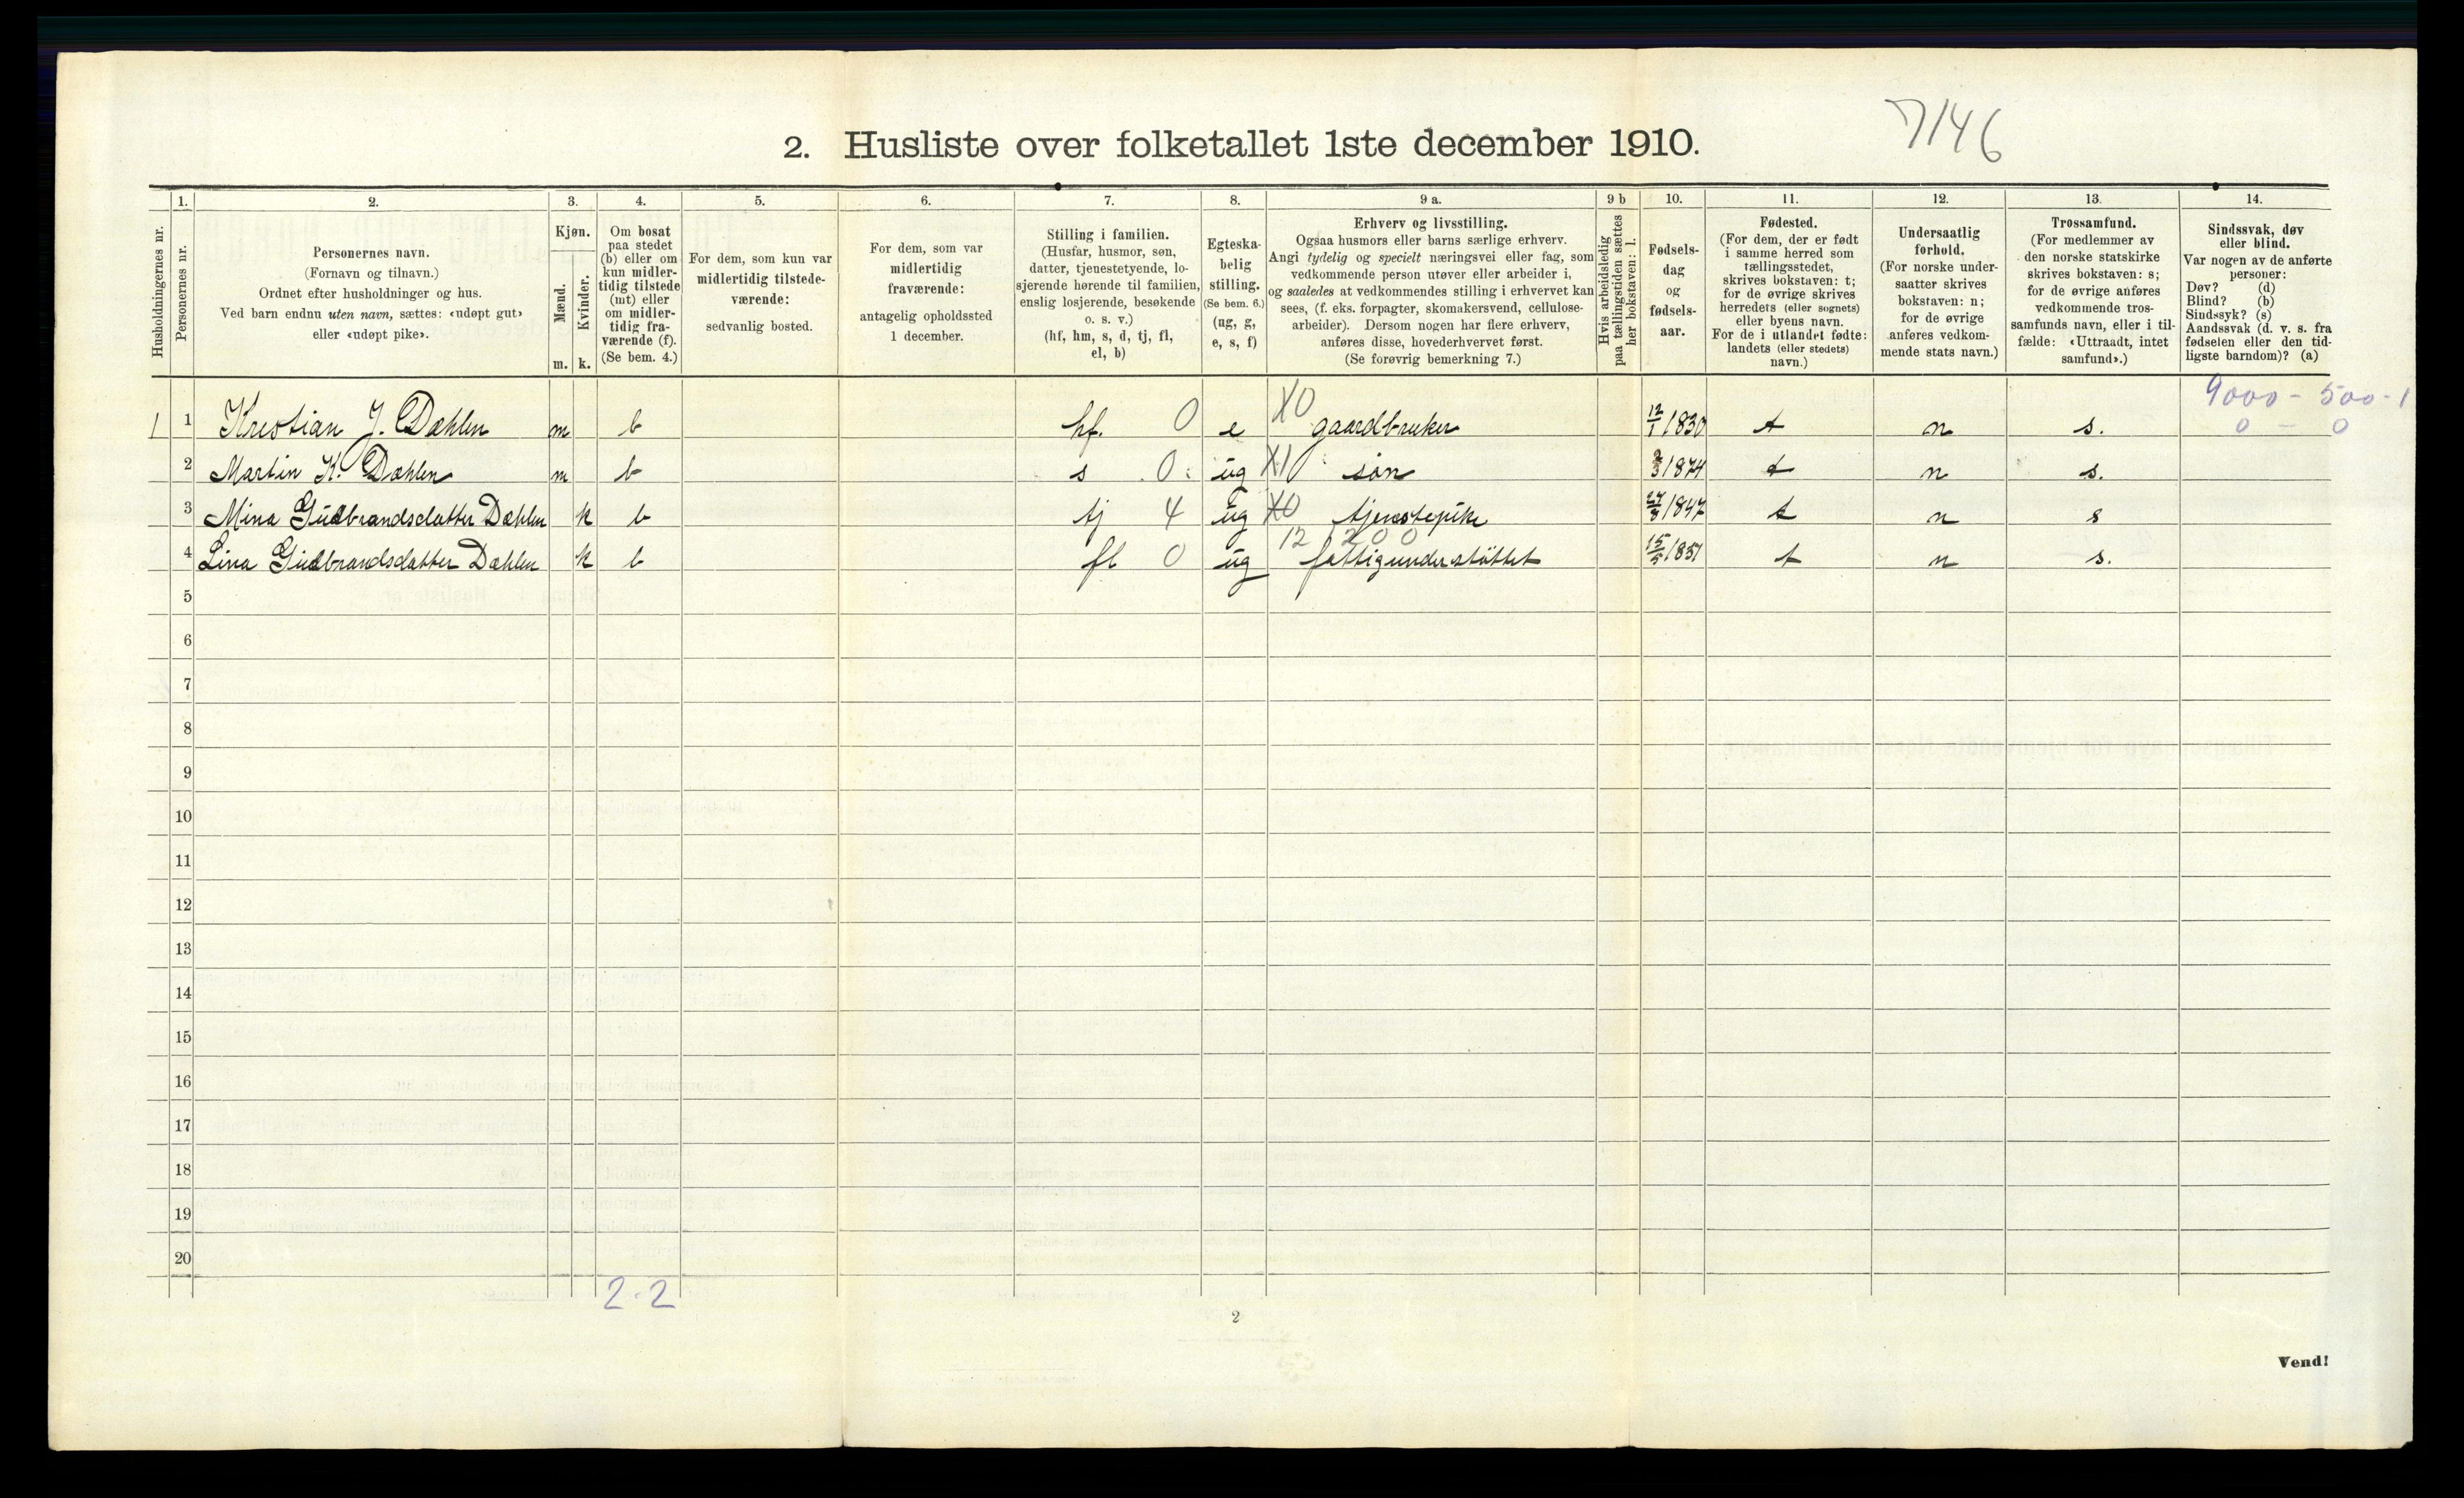 7146
2. Husliste over folketallet 1ste december 1910.
Husholdningernes nr.
1. Personernes nr.
2. Personernes navn.
(Fornavn og tilnavn.)
Ordnet efter husholdninger og hus.
Ved barn endnu uten navn, sættes: «udøpt gut»
eller «udøpt pike».
3. Kjøn.
Mænd. m.
Kvinder. k.
4. Om bosat
paa stedet
(b) eller om
kun midler-
tidig tilstede
(mt) eller
om midler-
tidig fra-
værende (f).
(Se bem. 4.)
5. For dem, som kun var
midlertidig tilstede-
værende:
sedvanlig bosted.
6. For dem, som var
midlertidig
fraværende:
antagelig opholdssted
1 december.
7. Stilling i familien.
(Husfar, husmor, søn,
datter, tjenestetyende, lo-
sjerende hørende til familien,
enslig losjerende, besøkende
o. s. v.)
(hf, hm, s, d, tj, fl,
el, b)
8. Egteska-
belig
stilling.
(Se bem. 6.)
(ug, g,
e, s, f)
9 a. Erhverv og livsstilling.
Ogsaa husmors eller barns særlige erhverv.
Angi tydelig og specielt næringsvei eller fag, som
vedkommende person utøver eller arbeider i,
og saaledes at vedkommendes stilling i erhvervet kan
sees, (f. eks. forpagter, skomakersvend, cellulose-
arbeider). Dersom nogen har flere erhverv,
anføres disse, hovederhvervet først.
(Se forøvrig bemerkning 7.)
9 b Hvis arbeidsledig
paa tællingstiden sættes
her bokstaven: l.
10. Fødsels-
dag
og
fødsels-
aar.
11. Fødested.
(For dem, der er født
i samme herred som
tællingsstedet,
skrives bokstaven: t;
for de øvrige skrives
herredets (eller sognets)
eller byens navn.
For de i utlandet fødte:
landets (eller stedets)
navn.)
12. Undersaatlig
forhold.
(For norske under-
saatter skrives
bokstaven: n;
for de øvrige
anføres vedkom-
mende stats navn.)
13. Trossamfund.
(For medlemmer av
den norske statskirke
skrives bokstaven: s;
for de øvrige anføres
vedkommende tros-
samfunds navn, eller i til-
fælde: «Uttraadt, intet
samfund».)
14. Sindssvak, døv
eller blind.
Var nogen av de anførte
personer:
Døv? (d)
Blind? (b)
Sindssyk? (s)
Aandssvak (d. v. s. fra
fødselen eller den tid-
ligste barndom)? (a)
9000 - 500 - 1
1 1 Kristian J. Dæhlen m b hf. 0 e X0 gaardbruker 12/1 1830 t n s. 0 - 0
2 Martin K. Dæhlen m b s 0 ug X1 søn 1874 t n s.
3 Mina Gudbrandsdatter Dæhlen k b tj 4 ug X0 tjenestepike 1847 t n s
12 200
4 Lina Gudbrandsdatter Dæhlen k b fl 0 ug fattigunderstøttet 15/5 1851 t n s.
5
6
7
8
9
10
11
12
13
14
15
16
17
18
19
20
2 . 2
2
Vend!